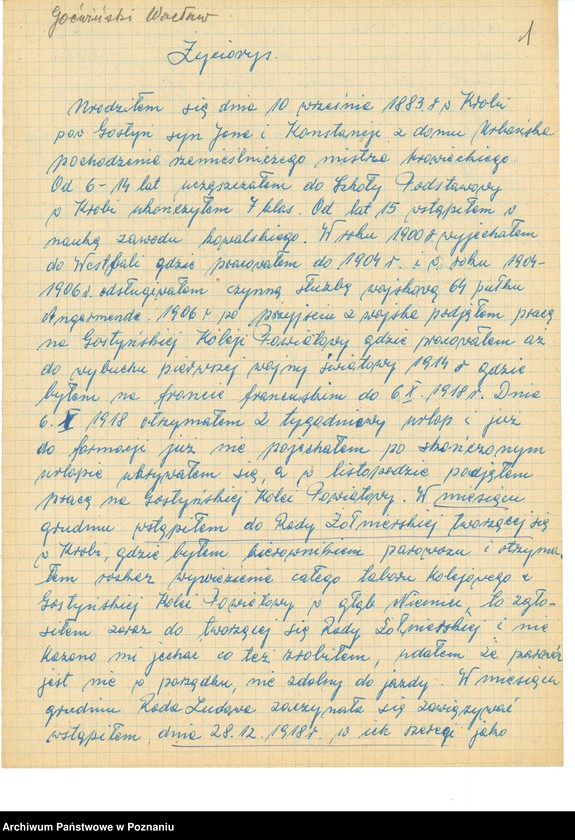 Goćwiński Wacław
1
Życiorys.
Urodziłem się dnia 10 września 1883 r w Krobi
pow Gostyn syn Jana i Konstancji z domu Urbańska
pochodzenia rzemieślniczego mistrza krawieckiego
Od 6-14 lat uczęszczałem do Szkoły Podstawowy
w Krobi ukończyłem 7 klas. Od lat 15 wstąpiłem w
nauką zawodu kowalskiego. W roku 1900 r. wyjechałem
do Westfali gdzie pracowałem do 1904 r. i w roku 1904-
1906 r. odsługiwałem czynną służbę wojskową 64 pułku
Angermende. 1906 r po przyjściu z wojska podjąłem pracą
na Gostyńskiej Koleji Powiatowy gdzie pracowałem aż
do wybuchu pierwszej wojny światowy 1914 r gdzie
byłem na froncie francuskim do 6 X. 1918 r. Dnia
6. X 1918 otrzymałem 2 tygodniowy urlop i już
do formacji już nie pojechałem po skończonym
urlopie ukrywałem się, a w listopadzie podjąłem
pracą na Gostyńskiej Kolei Powiatowy. W miesiącu
grudniu wstąpiłem do Rady Żołnierskiej tworzącej się
w Krobi, gdzie byłem kierownikiem parowozu i otrzyma-
łem rozkaz wywiezienia całego taboru kolejowego z
Gostyńskiej Kolei Powiatowy w głąb Niemiec, to zgło-
siłem zaraz do tworzącej się Rady Żołnierskiej i nie
kazano mi jechać co też zrobiłem, udałem że parowóz
jest nie w porządku, nie zdolny do jazdy. W miesiącu
grudniu Rada Ludowa zaczynała się zawiązywać
wstąpiłem dnia 28.12.1918 r. w ich szeregi jako
Archiwum Państwowe w Poznaniu